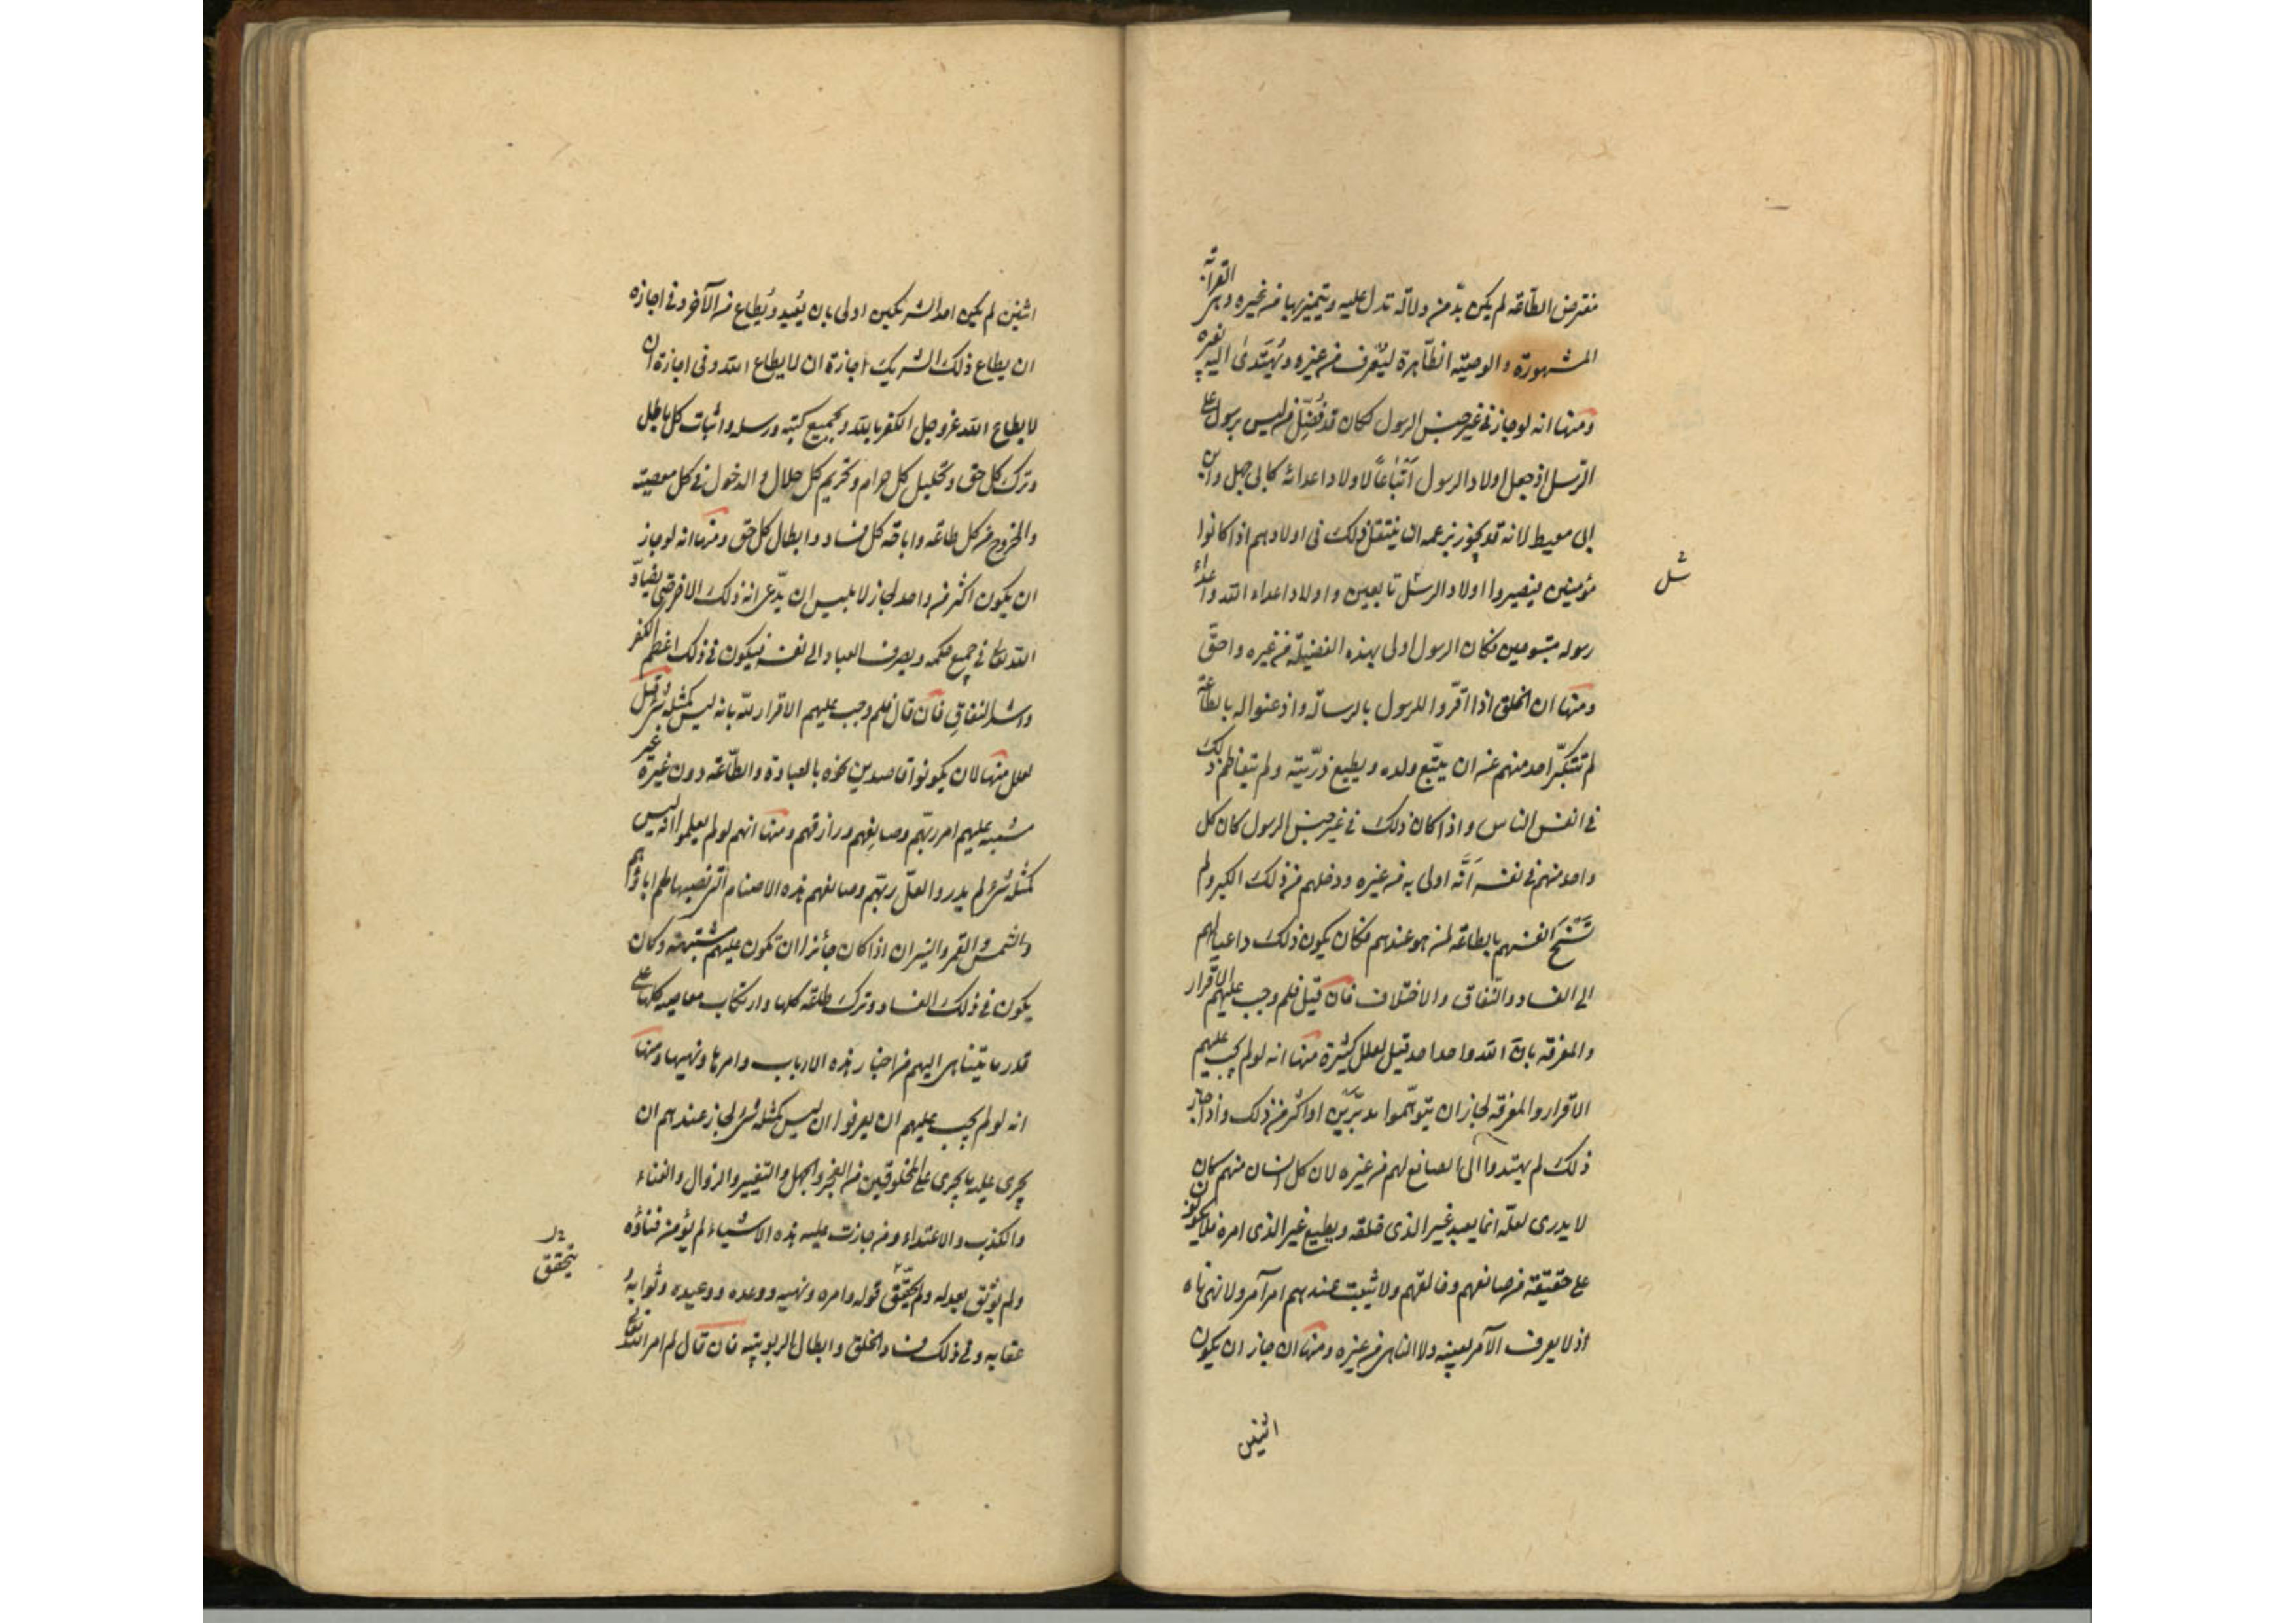 مفترض الطاعة لم يكن بدّ من دلالة تدل عليه ويتميز بها من غيره وهى القرابة
المشهورة والوصية الظاهرة ليعرف من غيره ويهتدى اليه بعينه
ومنها انه لو جاز فى غير جنس الرسول لكان قد فضّل من ليس برسول على
الرسل اذ جعل اولاد الرسول اتباعاً لاولاد اعدائه كابى جهل وابن
ابى معيط لانه قد يجوز بزعمه ان ينتقل ذلك فى اولادهم اذا كانوا
مؤمنين فيصيروا اولاد الرسل تابعين واولاد اعداء الله واعداء
شل
رسوله متبوعين فكان الرسول اولى بهذه الفضيلة من غيره واحقّ
ومنها ان الخلق اذا اقرّوا للرسول بالرسالة واذعنوا له بالطاعة
لم تتكبّر احد منهم عن ان يتّبع ولده ويطيع ذرّيته ولم يتعاظم ذلك
فى انفس الناس واذا كان ذلك فى غير جنس الرسول كان كل
واحد منهم فى نفسه انّه اولى به من غيره ودخلهم من ذلك الكبر ولم
تسنح انفسهم بالطاعة لمن هو عندهم فكان يكون ذلك داعيا لهم
الى الفساد والنّفاق والاختلاف فان قيل فلم وجب عليهم الاقرار
والمعرفة بانّ الله واحد احد قيل لعلل كثيرة منها انه لو لم يجب عليهم
الاقرار والمعرفة لجاز ان يتوهّموا مدبّرين او اكثر من ذلك واذا جاز
ذلك لم يهتدوا الى الصانع لهم من غيره لان كل انسان منهم كان
لا يدرى لعلّه انما يعبد غير الذى خلقه ويطيع غير الذى امره فلا يكونون
على حقيقة من صانعهم وخالقهم ولا يثبت عندهم امر آمر ولا نهى ناه
اذ لا يعرف الآمر بعينه ولا الناهى من غيره ومنها ان جاز ان يكون
اثنين
اثنين لم يكن احد الشريكين اولى بان يعبد ويطاع من الآخر وفى اجازة
ان يطاع ذلك الشريك اجازة ان لا يطاع الله وفى اجازة ان
لا يطاع الله عز وجل الكفر بالله وبجميع كتبه ورسله واثبات كل باطل
وترك كل حق وتحليل كل حرام وتحريم كل حلال والدخول فى كل معصية
والخروج من كل طاعة واباحة كل فساد وابطال كل حق ومنها انه لو جاز
ان يكون اكثر من واحد لجاز لابليس ان يدّعى انه ذلك الاخر حتى يضادّ
الله تعالى فى جميع حكمه ويصرف العباد الى نفسه فيكون فى ذلك اعظم الكفر
واشد النفاق فان قال فلم وجب عليهم الاقرار لله بانه ليس كمثله شئ قيل
لعلل منها لان يكونوا قاصدين نحوه بالعبادة والطّاعة دون غيره غير
مشتبه عليهم امر ربّهم وصانعهم ورازقهم ومنها انهم لو لم يعلموا انه ليس
كمثله شئ لم يدروا لعلّ ربّهم وصانعهم هذه الاصنام التى نصبها لهم اباؤهم
والشمس والقمر والنيران اذا كان جائزا ان تكون عليهم مشتبهة وكان
يكون فى ذلك الفساد وترك طاعته كلها وارتكاب معاصيه كلها على
قدر ما يتناهى اليهم من اخبار هذه الارباب وامرها ونهيها ومنها
انه لو لم يجب عليهم ان يعرفوا ان ليس كمثله شئ لجاز عندهم ان
يجرى عليه ما يجرى على المخلوقين من العجز والجهل والتغيير والزوال والفناء
والكذب والاعتداء ومن جازت عليه هذه الاشياء لم يؤمن فناؤه
ولم يوثق بعدله ولم يحقّق قوله وامره ونهيه ووعده ووعيده وثوابه و
يتحقق
عقابه وفى ذلك فساد الخلق وابطال الربوبيّة فان قال لم امر الله تعالى